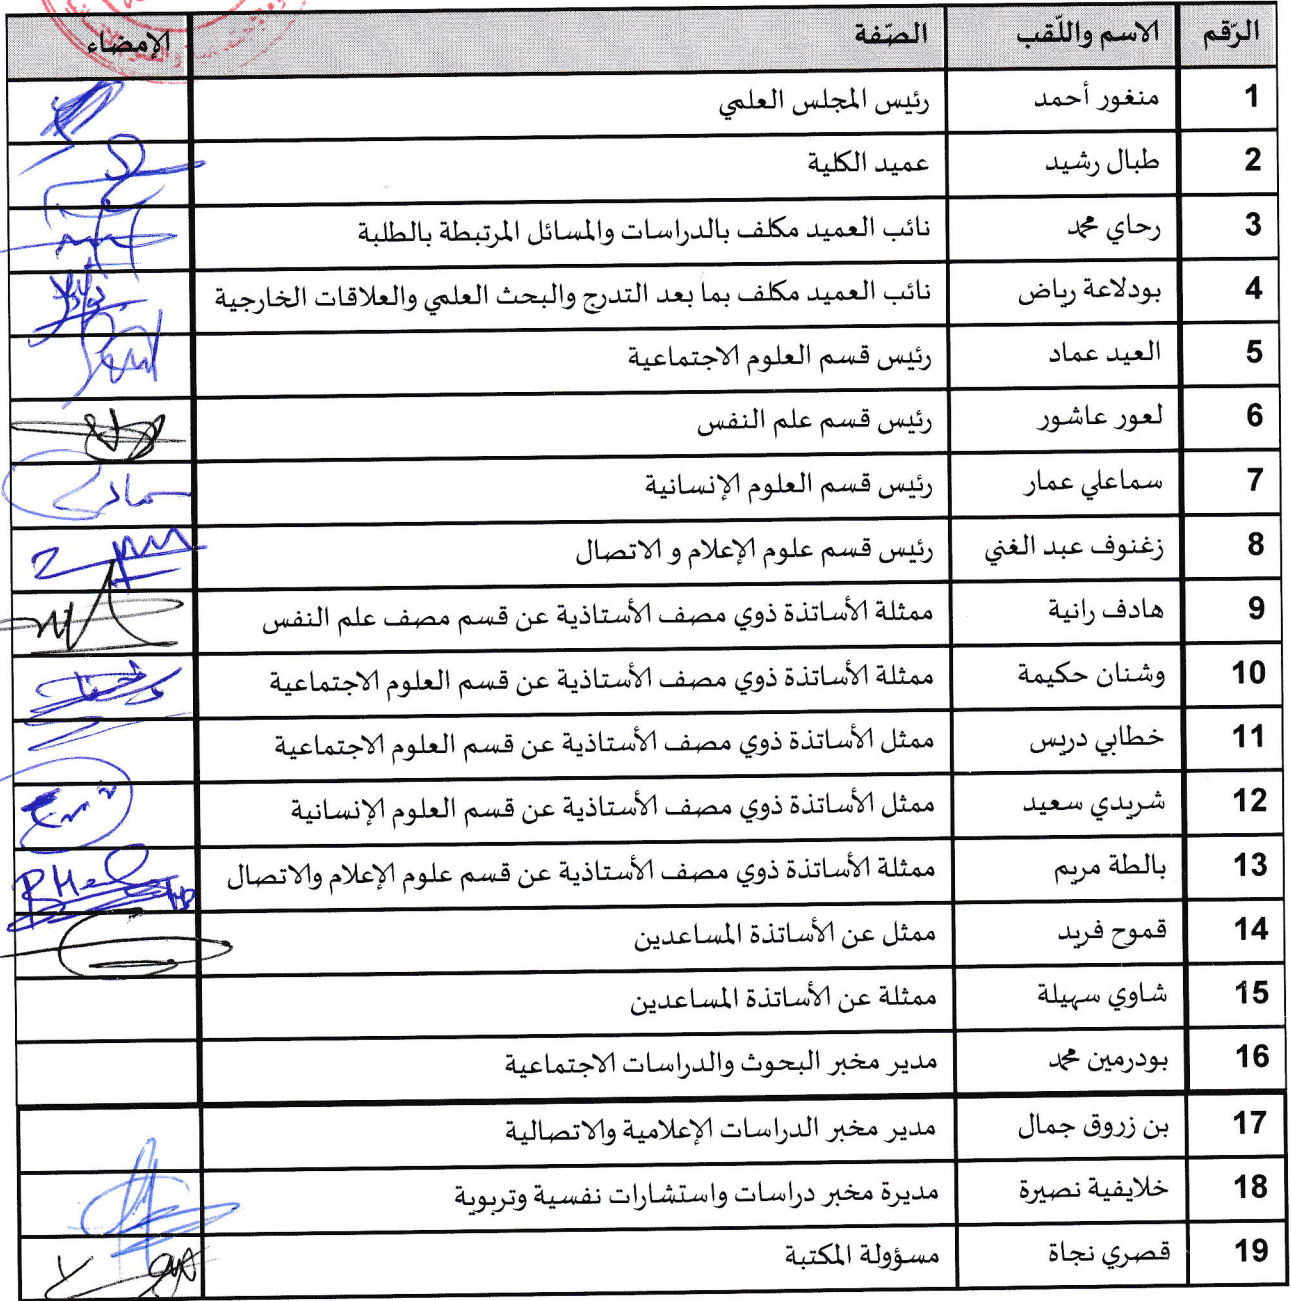 الرّقم الاسم واللّقب الصّفة الإمضاء
1 منغور أحمد رئيس المجلس العلمي
2 طبال رشيد عميد الكلية
3 رحاي محمد نائب العميد مكلف بالدراسات والمسائل المرتبطة بالطلبة
4 بودلاعة رياض نائب العميد مكلف بما بعد التدرج والبحث العلمي والعلاقات الخارجية
5 العيد عماد رئيس قسم العلوم الاجتماعية
6 لعور عاشور رئيس قسم علم النفس
7 سماعلي عمار رئيس قسم العلوم الإنسانية
8 زغنوف عبد الغني رئيس قسم علوم الإعلام و الاتصال
9 هادف رانية ممثلة الأساتذة ذوي مصف الأستاذية عن قسم مصف علم النفس
10 وشنان حكيمة ممثلة الأساتذة ذوي مصف الأستاذية عن قسم العلوم الاجتماعية
11 خطابي دريس ممثل الأساتذة ذوي مصف الأستاذية عن قسم العلوم الاجتماعية
12 شريدي سعيد ممثل الأساتذة ذوي مصف الأستاذية عن قسم العلوم الإنسانية
13 بالطة مريم ممثلة الأساتذة ذوي مصف الأستاذية عن قسم علوم الإعلام والاتصال
14 قموح فريد ممثل عن الأساتذة المساعدين
15 شاوي سهيلة ممثلة عن الأساتذة المساعدين
16 بودرمين محمد مدير مخبر البحوث والدراسات الاجتماعية
17 بن زروق جمال مدير مخبر الدراسات الإعلامية والاتصالية
18 خلايفية نصيرة مديرة مخبر دراسات واستشارات نفسية وتربوية
19 قصري نجاة مسؤولة المكتبة